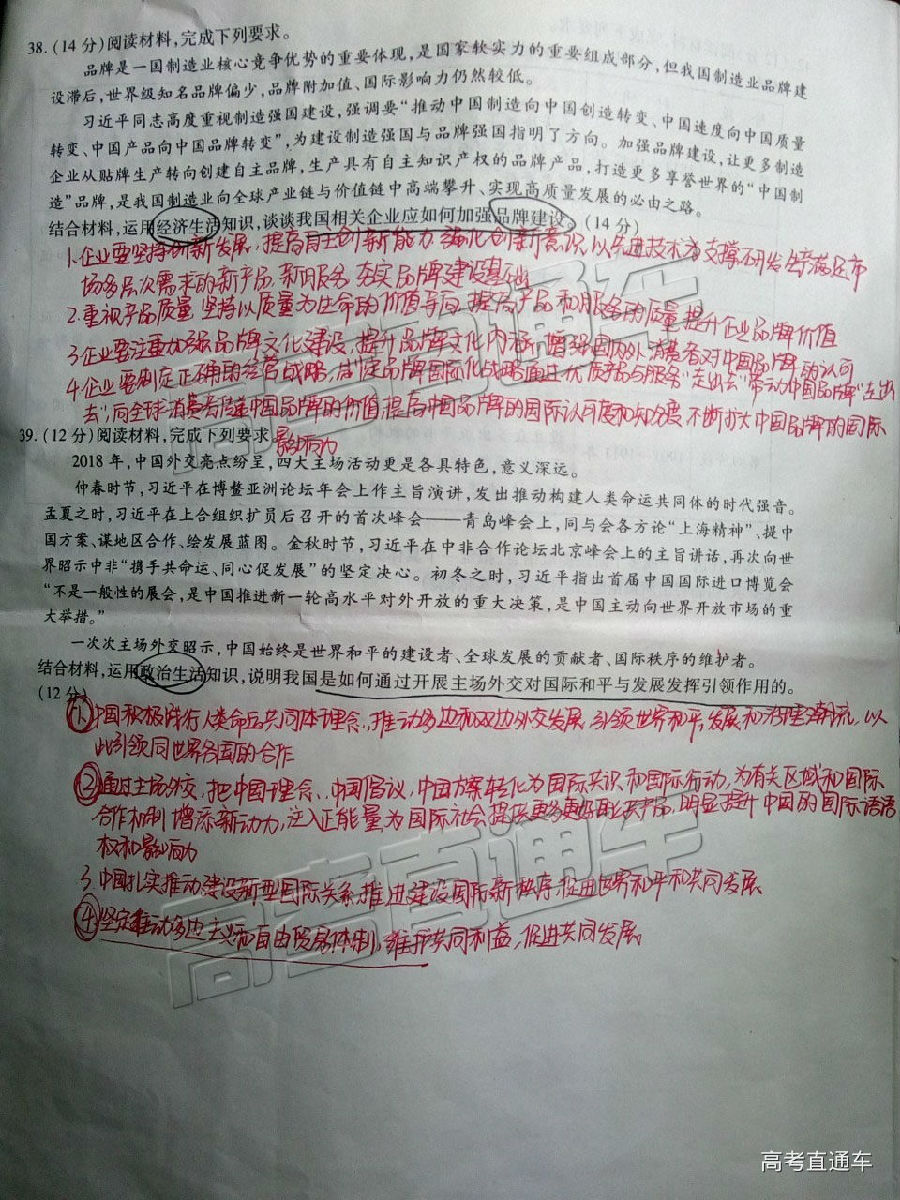 38. (14 分)阅读材料,完成下列要求。
品牌是一国制造业核心竞争优势的重要体现,是国家软实力的重要组成部分,但我国制造业品牌建
设滞后,世界级知名品牌偏少,品牌附加值、国际影响力仍然较低。
习近平同志高度重视制造强国建设,强调要“推动中国制造向中国创造转变、中国速度向中国质量
转变、中国产品向中国品牌转变”,为建设制造强国与品牌强国指明了方向。加强品牌建设,让更多制造
企业从贴牌生产转向创建自主品牌,生产具有自主知识产权的品牌产品,打造更多享誉世界的“中国制
造”品牌,是我国制造业向全球产业链与价值链中高端攀升、实现高质量发展的必由之路。
结合材料,运用经济生活知识,谈谈我国相关企业应如何加强品牌建设。(14 分)
1.企业要坚持创新发展,提高自主创新能力 强化创新意识 以先进技术为支撑研发生产满足市
场多层次需求的新产品,新服务 夯实品牌建设基础
2.重视产品质量 坚持以质量为生命的价值导向 提高产品和服务的质量 提升企业品牌价值
3.企业要注重加强品牌文化建设,提升品牌文化内涵 增强国内外消费者对中国品牌的认可
4.企业要制定正确的经营战略,制定品牌国际化战略 通过优质产品与服务“走出去”带动中国品牌“走出
去”向全球消费者传递中国品牌的价值 提高中国品牌的国际认可度和知名度 不断扩大中国品牌的国际
影响力
39. (12 分)阅读材料,完成下列要求
2018 年,中国外交亮点纷呈,四大主场活动更是各具特色,意义深远。
仲春时节,习近平在博鳌亚洲论坛年会上作主旨演讲,发出推动构建人类命运共同体的时代强音。
孟夏之时,习近平在上合组织扩员后召开的首次峰会——青岛峰会上,同与会各方论“上海精神”、提中
国方案、谋地区合作、绘发展蓝图。金秋时节,习近平在中非合作论坛北京峰会上的主旨讲话,再次向世
界昭示中非“携手共命运、同心促发展”的坚定决心。初冬之时,习近平指出首届中国国际进口博览会
“不是一般性的展会,是中国推进新一轮高水平对外开放的重大决策,是中国主动向世界开放市场的重
大举措。”
一次次主场外交昭示,中国始终是世界和平的建设者、全球发展的贡献者、国际秩序的维护者。
结合材料,运用政治生活知识,说明我国是如何通过开展主场外交对国际和平与发展发挥引领作用的。
(12 分)
①中国积极践行人类命运共同体理念,推动多边和双边外交发展 引领世界和平,发展和治理潮流,以
此引领同世界各国的合作
②通过主场外交,把中国理念、中国倡议,中国方案转化为国际共识和国际行动,为有关区域和国际
合作机制 增添新动力,注入正能量 为国际社会提供更多公共产品,明显提升中国的国际话语
权和影响力
3.中国扎实推动建设新型国际关系,推进建设国际新秩序 促进世界和平和共同发展
④坚定推动多边主义和自由贸易体制,维护共同利益,促进共同发展
高考直通车
高考直通车
高考直通车